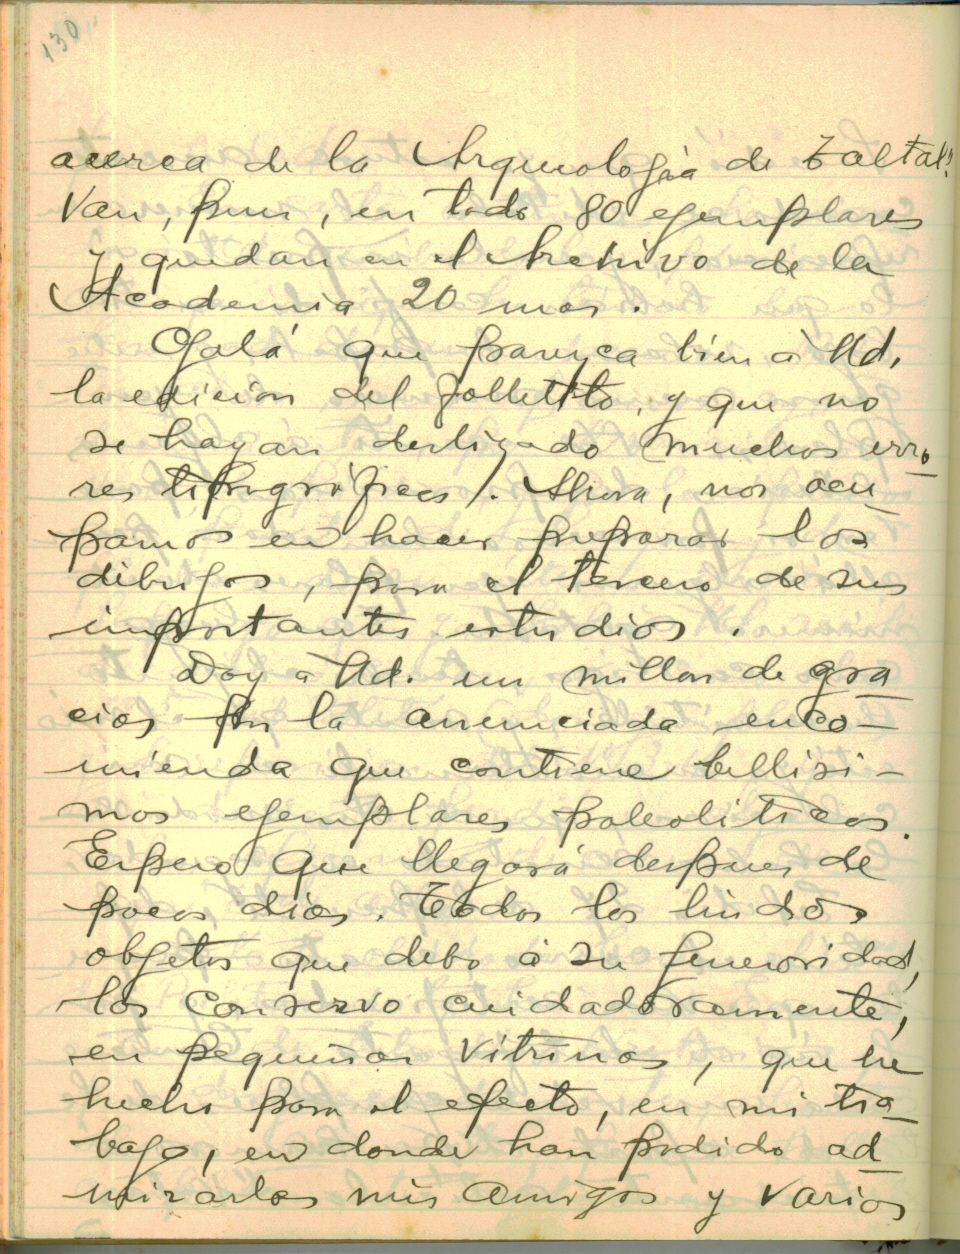 130
acerca de la Arqueología de Taltal"
Van, pues, en todo 80 ejemplares
y quedan en el Archivo de la
Academia 20 mas.
Ojalá que parezca bien à Ud.
la edicion del folletito, y que no
se hayan deslizado muchos erro
res tipográficos. Ahora, nos ocu-
pamos en hacer preparar los
dibujos, para el tercero de sus
importantes estudios.
Doy a Ud. un millon de gra
cias por la anunciada enco-
mienda que contiene bellisi-
mos ejemplares paleoliticos.
Espero que llegará despues de
pocos dias. Todos los lindos
objetos que debo à su generosidad,
los conservo cuidadosamente,
en pequeñas vitrinas, que he
hecho para el efecto, en mi tra-
bajo, en donde han podido ad-
mirarlos mis amigos y varios